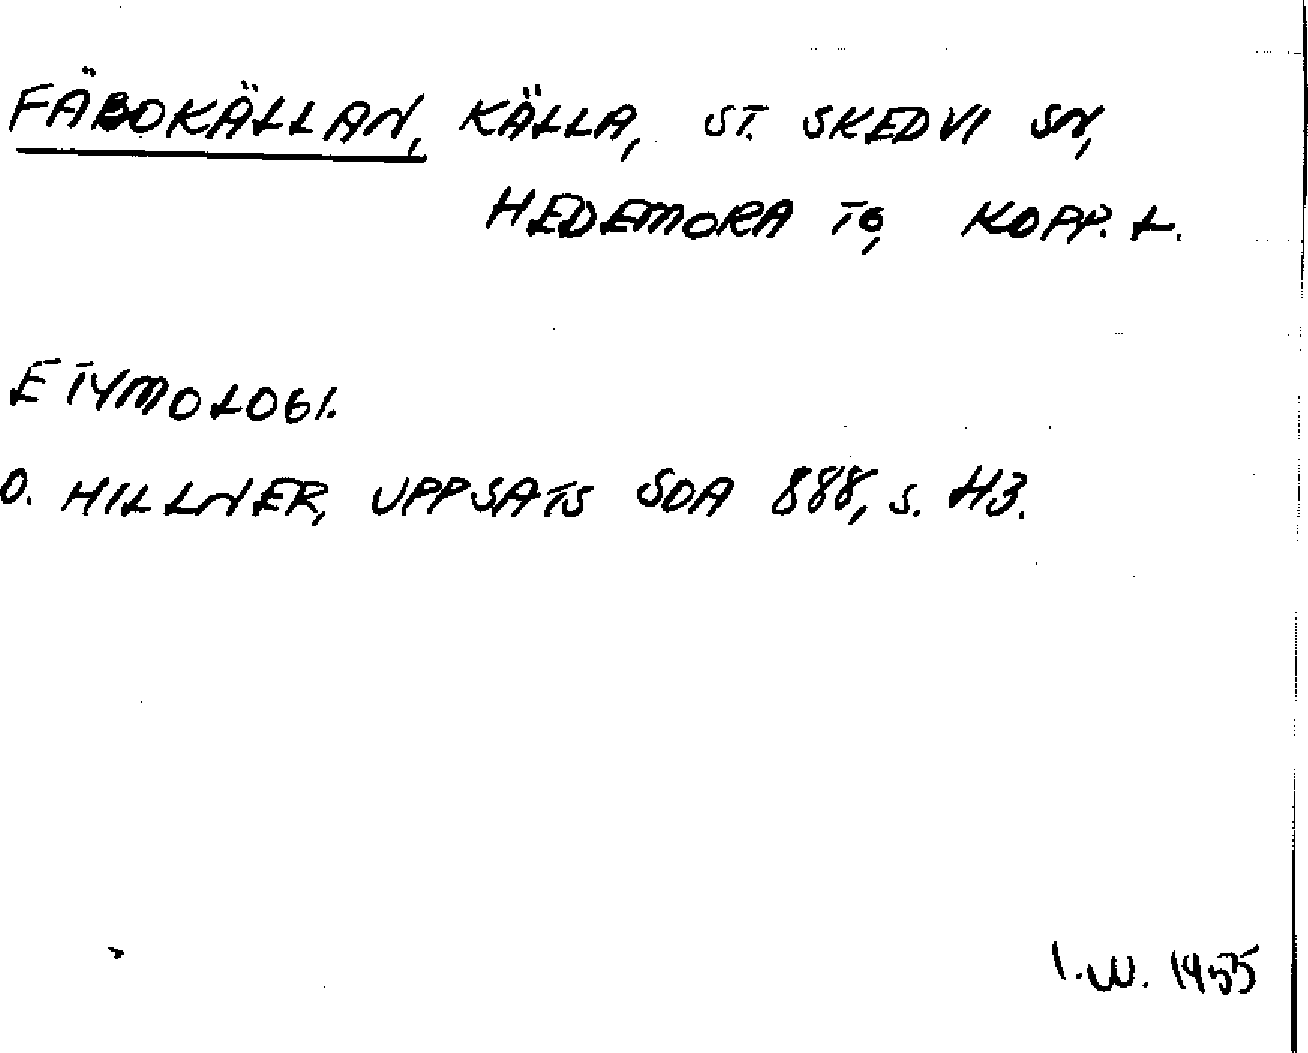 FÄBOKÄLLAN, KÄLLA, ST. SKEDVI SN,
HEDEMORA TG, KOPP. L.
ETYMOLOGI.
O. HILLNER, UPPSATS SOA 888, S. 43.
I.W. 1955